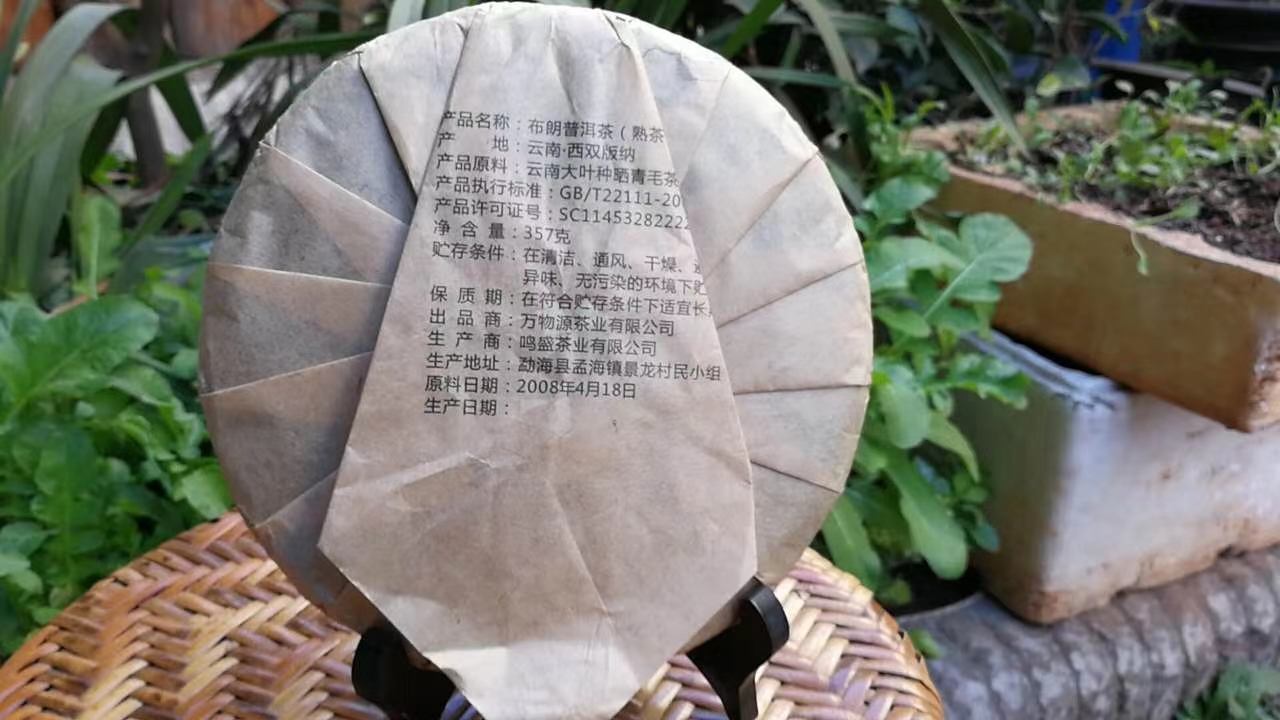 产品名称：布朗普洱茶（熟茶
产 地：云南·西双版纳
产品原料：云南大叶种晒青毛茶
产品执行标准：GB/T22111-20
产品许可证号：SC1145328222
净 含 量：357克
贮存条件：在清洁、通风、干燥、
异味、无污染的环境下贮
保 质 期：在符合贮存条件下适宜长
出 品 商：万物源茶业有限公司
生 产 商：鸣盛茶业有限公司
生产地址：勐海县孟海镇景龙村民小组
原料日期：2008年4月18日
生产日期：